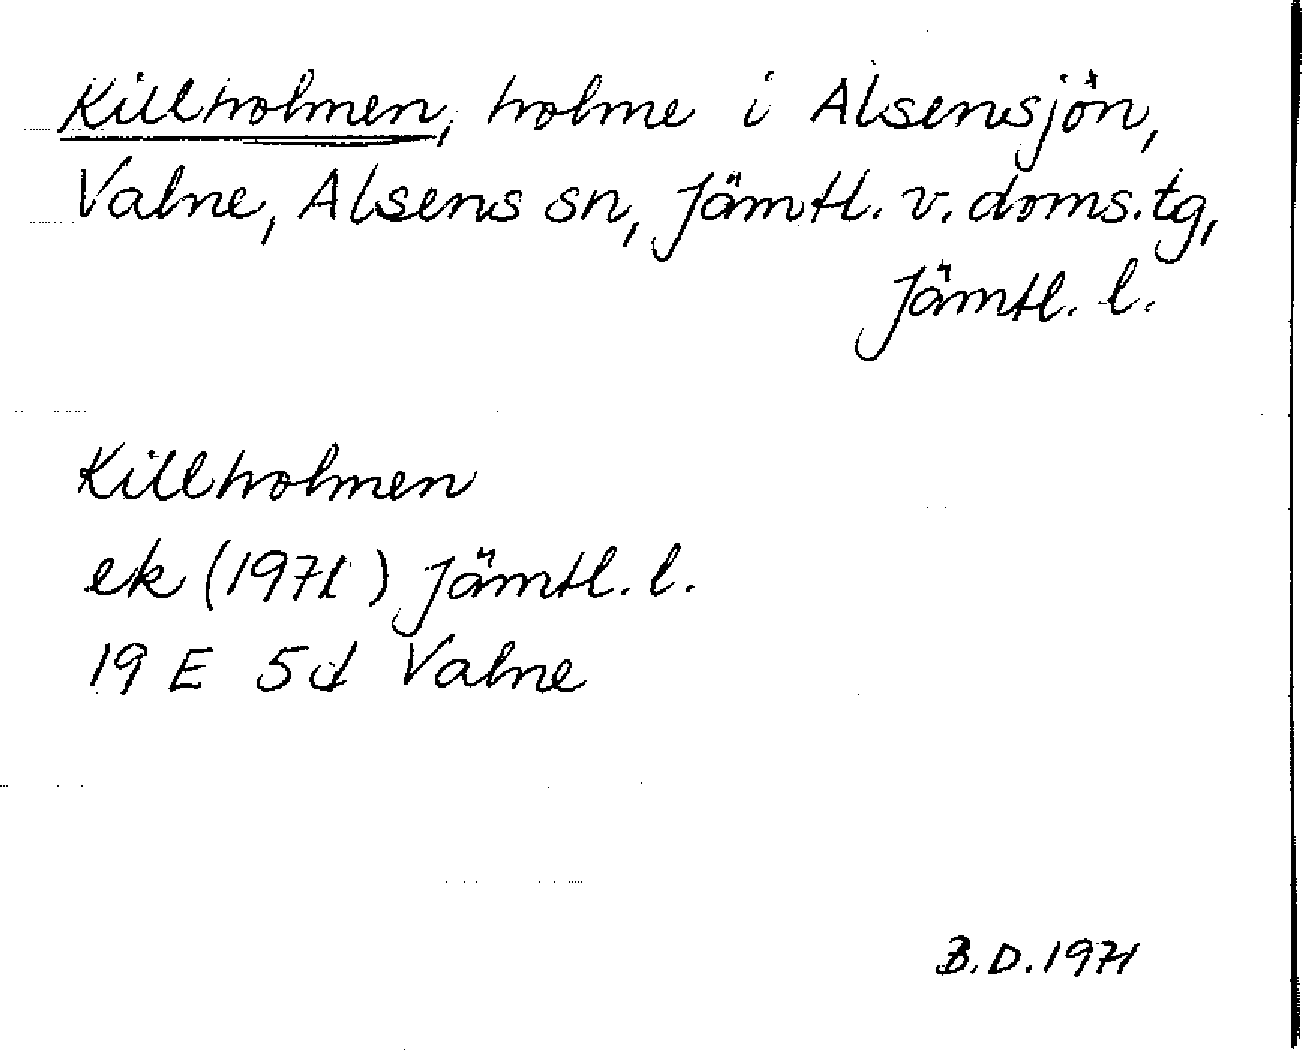 Killholmen, holme i Alsensjön,
Valne, Alsens sn, Jämtl. v. doms.tg,
Jämtl. l.
Killholmen
ek (1971) Jämtl. l.
19 E 5d Valne
B.D. 1971